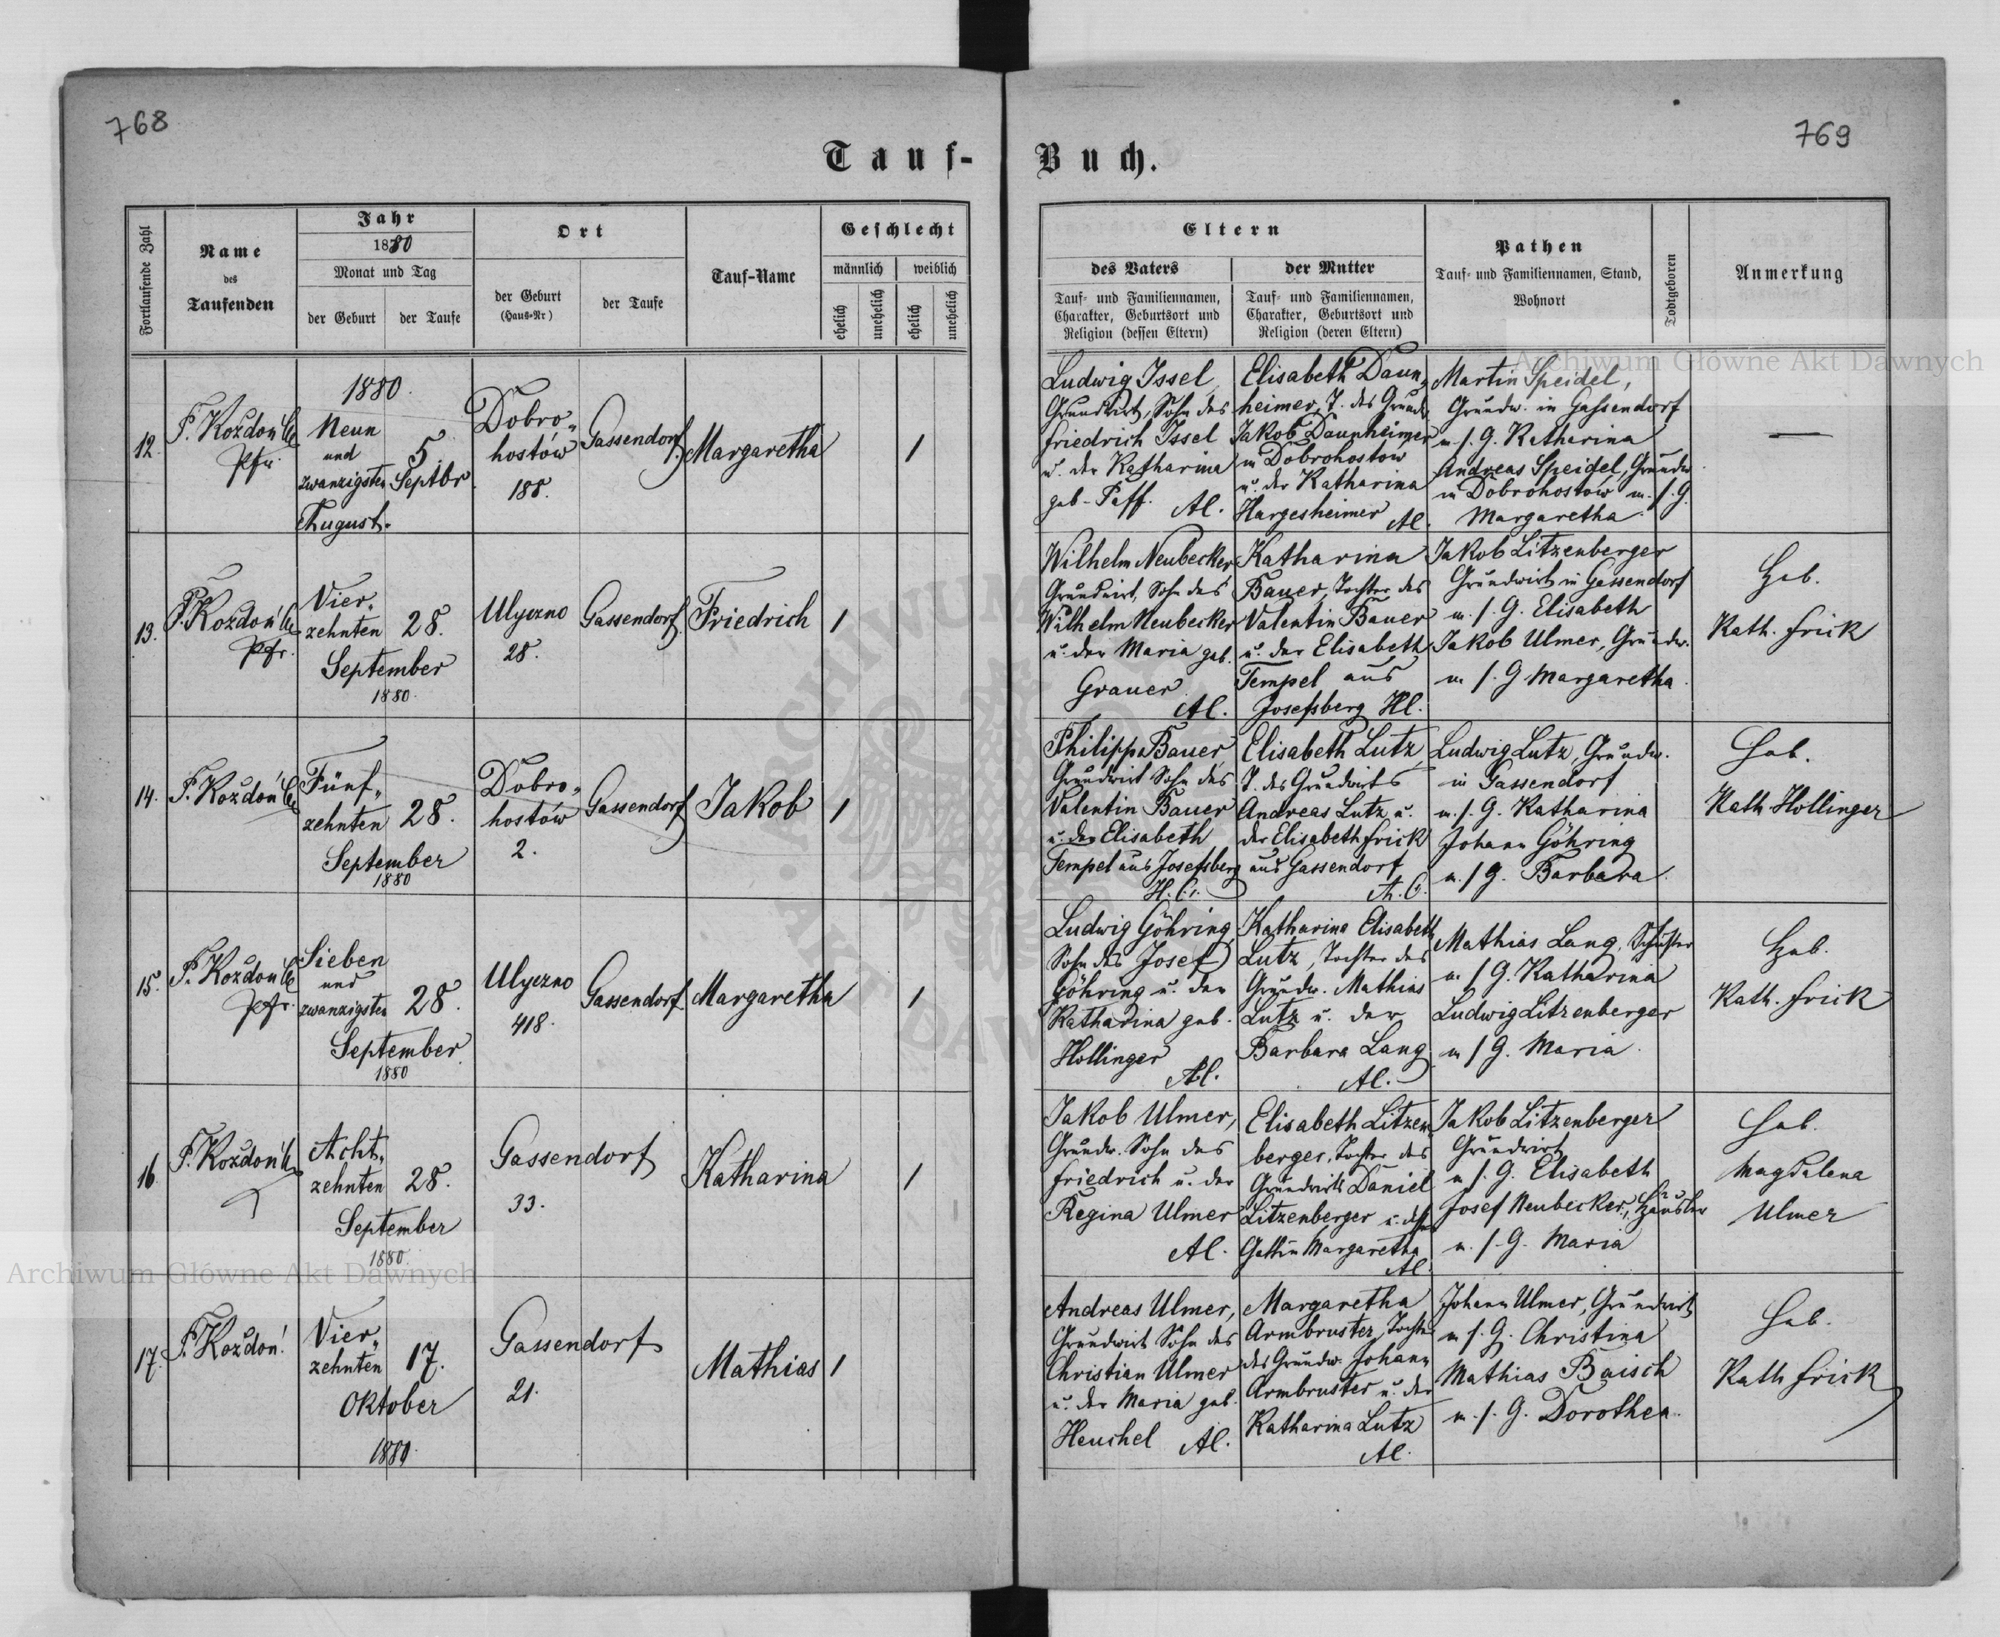 768
769
Tauf-
Buch.
Fortlaufende Zahl
Name
des
Taufenden
Jahr
1880
Monat und Tag
der Geburt
der Taufe
Ort
der Geburt
(Haus-Nr)
der Taufe
Tauf-Name
Geschlecht
männlich
weiblich
ehelich
unehelich
ehelich
unehelich
Eltern
des Vaters
Tauf- und Familiennamen,
Charakter, Geburtsort und
Religion (dessen Eltern)
der Mutter
Tauf- und Familiennamen,
Charakter, Geburtsort und
Religion (deren Eltern)
Pathen
Tauf- und Familiennamen, Stand,
Wohnort
Todtgeboren
Anmerkung
12.
F. Kozdoń
Pfr.
1880.
Neun
und
zwanzigsten
August.
5.
Septbr
Dobro-
hostów
188.
Gassendorf
Margaretha
1
Ludwig Issel,
Grundwirt, Sohn des
Friedrich Issel
u. der Katharina
geb. Paff. AC.
Elisabeth Daun-
heimer, T. des Grundw.
Jakob Daunheimer
in Dobrohostow
u. der Katharina
Hargesheimer AC.
Martin Speidel,
Grundw. in Gassendorf
m. s. G. Katharina
Andreas Speidel, Grundw
in Dobrohostów m. s. G.
Margaretha
—
13.
F. Kozdoń
Pfr.
Vier-
zehnten
September
1880.
28.
Ulyczno
28.
Gassendorf
Friedrich
1
Wilhelm Neubecker
Grundwirt, Sohn des
Wilhelm Neubecker
u. der Maria geb.
Grauer
AC.
Katharina
Bauer, Tochter des
Valentin Bauer
u. der Elisabeth
Tempel aus
Josefsberg HC.
Jakob Litzenberger
Grundwirt in Gassendorf
m. s. G. Elisabeth
Jakob Ulmer, Grundw.
m s. G. Margaretha.
Heb.
Kath. Frick
14.
F. Kozdoń
Fünf-
zehnten
September
1880
28.
Dobro-
hostów
2.
Gassendorf
Jakob
1
Philipp Bauer,
Grundwirt Sohn des
Valentin Bauer
u. der Elisabeth
Tempel aus Josefsberg
H.C.
Elisabeth Lutz,
T. des Grundwirts
Andreas Lutz u.
der Elisabeth Frick
aus Gassendorf
A.C.
Ludwig Lutz, Grundw.
in Gassendorf
m. s. G. Katharina
Johann Göhring
m. s G. Barbara.
Heb.
Kath. Hollinger
15.
F. Kozdoń
Pfr.
Sieben
und
zwanzigsten
September
1880
28.
Ulyczno
418.
Gassendorf
Margaretha
1
Ludwig Göhring,
Sohn des Josef
Göhring u. der
Katharina geb.
Hollinger
AC.
Katharina Elisabeth
Lutz, Tochter des
Grundw. Mathias
Lutz u. der
Barbara Lang
AC.
Mathias Lang, Schuster
m. s G. Katharina
Ludwig Litzenberger
m s G. Maria.
Heb.
Kath. Frick
16
F. Kozdoń
Acht-
zehnten
September
1880.
28.
Gassendorf
33.
Katharina
1
Jakob Ulmer,
Grundw. Sohn des
Friedrich u. der
Regina Ulmer
AC.
Elisabeth Litzen-
berger, Tochter des
Grundwirts Daniel
Litzenberger u. dessen
Gattin Margaretha
AC.
Jakob Litzenberger
Grundwirt
m s. G. Elisabeth
Josef Neubecker, Häusler
m. s. G. Maria
Heb.
Magdalena
Ulmer
17.
F. Kozdoń.
Vier-
zehnten
Oktober
1880
17.
Gassendorf
21.
Mathias
1
Andreas Ulmer,
Grundwirt Sohn des
Christian Ulmer
u. der Maria geb.
Heuchel AC.
Margaretha
Armbruster, Tochter
des Grundw. Johann
Armbruster u. der
Katharina Lutz
AC.
Johann Ulmer, Grundwirt
m s. G. Christina
Mathias Baisch
m. s. G. Dorothea.
Heb.
Kath Frick
Archiwum Główne Akt Dawnych
Archiwum Główne Akt Dawnych